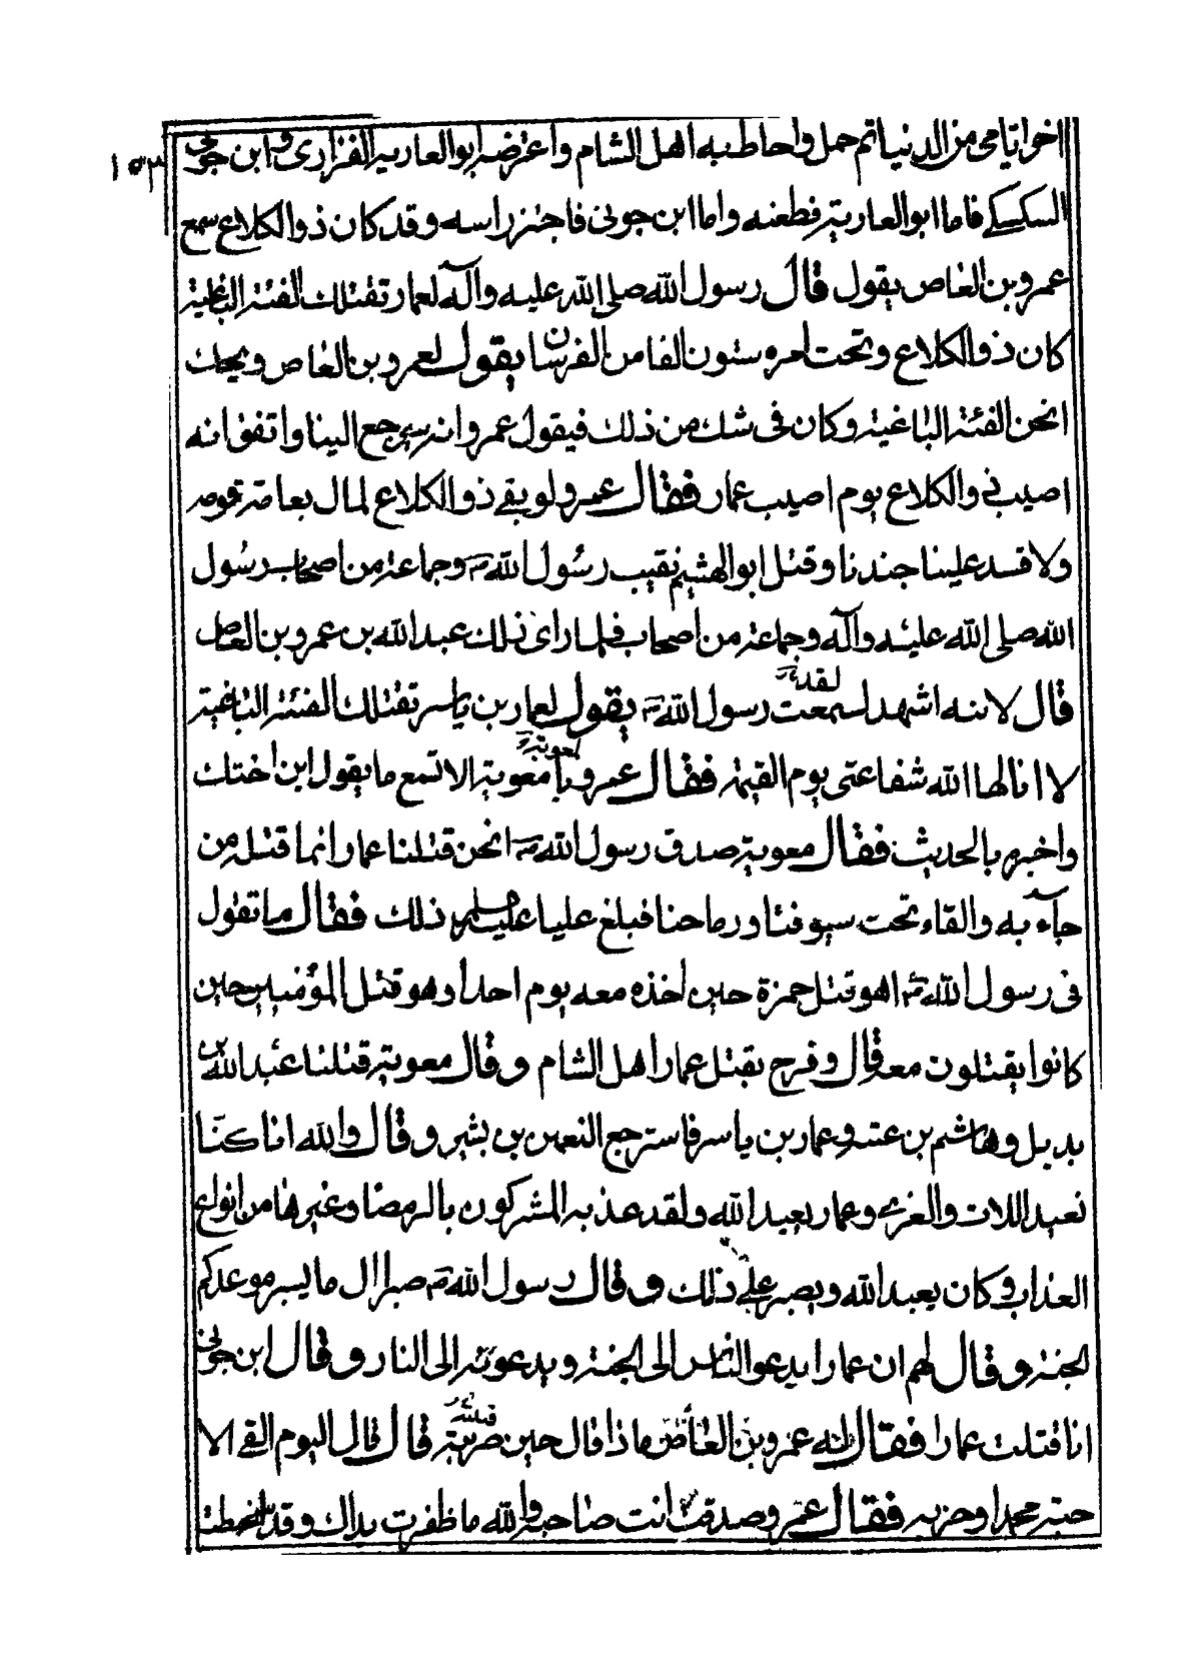 اخر ايامى من الدنيا ثم حمل واحاطت به اهل الشام واعترضه ابو العادية الفزارى وابن جونى
السكسكى فاما ابو العادية فطعنه واما ابن جونى فاجتز راسه وقد كان ذوالكلاع سمع
عمرو بن العاص يقول قال رسول الله صلى الله عليه وآله لعمار تقتلك الفئة الباغية
كان ذوالكلاع وتحت امره ستون الفا من الفرسان يقول لعمرو بن العاص ويحك
انحن الفئة الباغية وكان فى شك من ذلك فيقول عمرو انه سيرجع الينا واتفق انه
اصيب ذوالكلاع يوم اصيب عمار فقال عمرو لو بقى ذوالكلاع لمال بعامة قومه
ولافسد علينا جندنا وقتل ابوالهثيم نقيب رسول الله ص وجماعة من اصحاب رسول
الله صلى الله عليه وآله وجماعة من اصحاب فلما راى ذلك عبد الله بن عمرو بن العاص
قال لابيه اشهد لسمعت رسول الله ص يقول لعمار بن ياسر تقتلك الفئة الباغية
لا انالها الله شفاعتى يوم القيمة فقال عمرو يا معوية الا تسمع ما يقول ابن اختك
واخبره بالحديث فقال معوية صدق رسول الله ص انحن قتلنا عمارا انما قتله من
جآء به والقاه تحت سيوفنا ورماحنا فبلغ عليا عليه السلم ذلك فقال ما تقول
فى رسول الله ص اهو قتل حمزة حين اخذه معه يوم احد او هو قتل المؤمنين حين
كانوا يقتلون معه قال وفرح بقتل عمار اهل الشام وقال معوية قتلنا عبد الله بن
بديل وهاشم بن عتبه وعمار بن ياسر فاسترجع النعمن بن بشير وقال والله انا كنا
نعبد اللات والعزى وعمار يعبد الله ولقد عذبه المشركون بالرمضا وغيرها من انواع
العذاب وكان يعبد الله ويصبر على ذلك وقال رسول الله ص صبرا ال ما يسر موعدكم
الجنة وقال لهم ان عمارا يدعو الناس الى الجنة ويدعونه الى النار وقال ابن جونى
انا قتلت عمارا فقال له عمرو بن العاص ماذا قال حين ضربته قال قال اليوم القى الا
حبة محمدا وحزبه فقال عمرو صدقت انت صاحبه والله ما ظفرت يداك وقد اسخطت
١٥٣